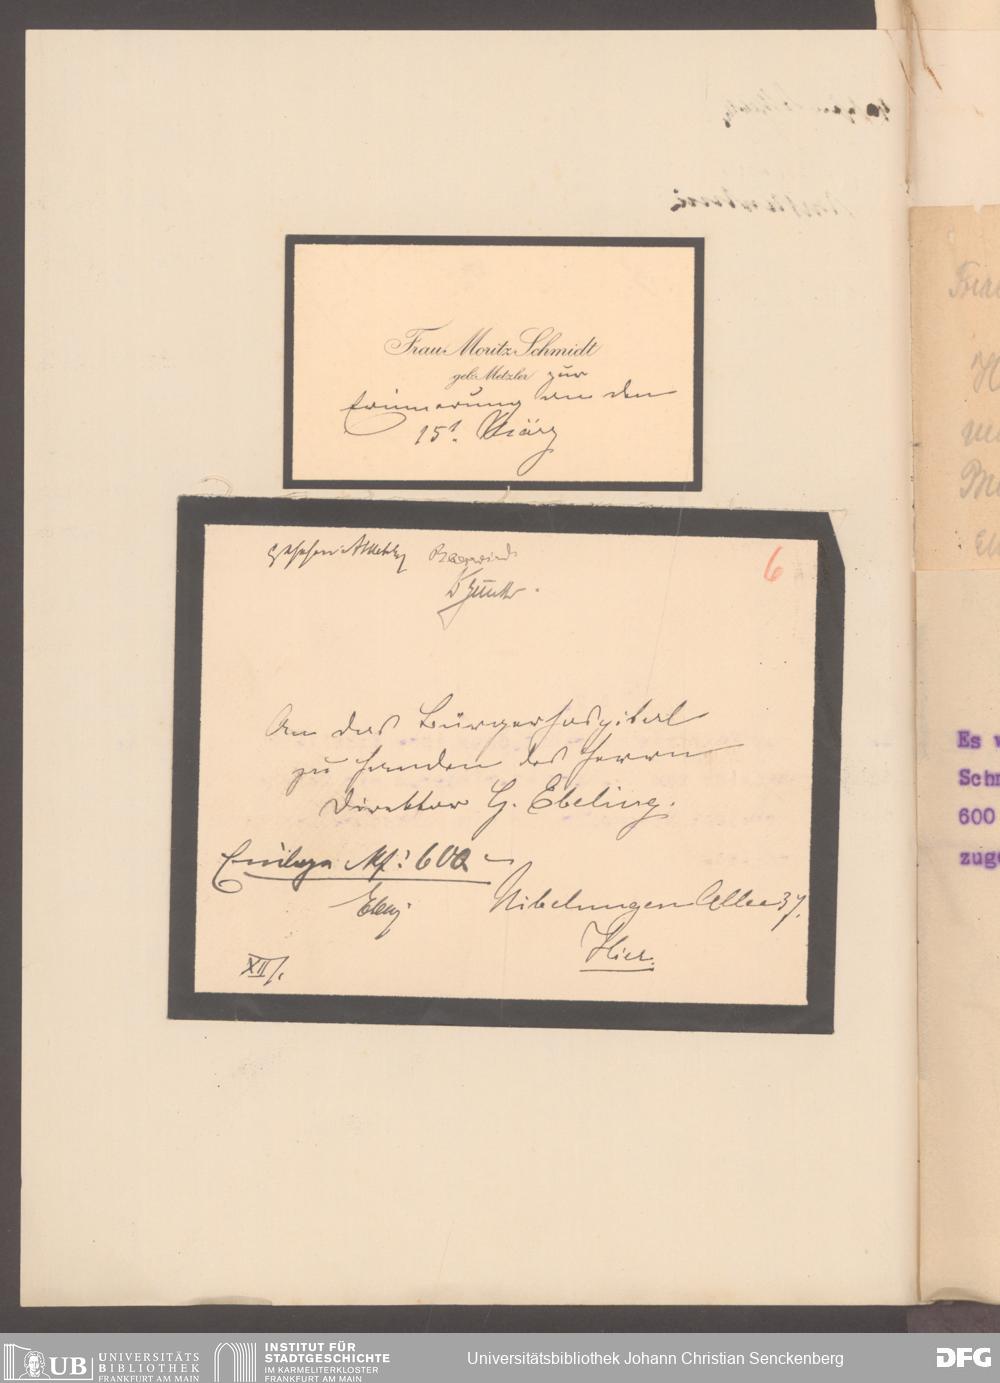 Frau Moritz Schmidt
geb. Metzler zur
Erinnerung an den
15t. März
gesehen
6
An das Bürgerhospital
zu Handen des Herrn
Direktor G. Ebeling.
Einlage Mk: 600 –
Nibelungen Allee 37.
Hier.
XII/.
Es
Schm
600
zuge
UB UNIVERSITÄTS
BIBLIOTHEK
FRANKFURT AM MAIN
INSTITUT FÜR
STADTGESCHICHTE
IM KARMELITERKLOSTER
FRANKFURT AM MAIN
Universitätsbibliothek Johann Christian Senckenberg
DFG